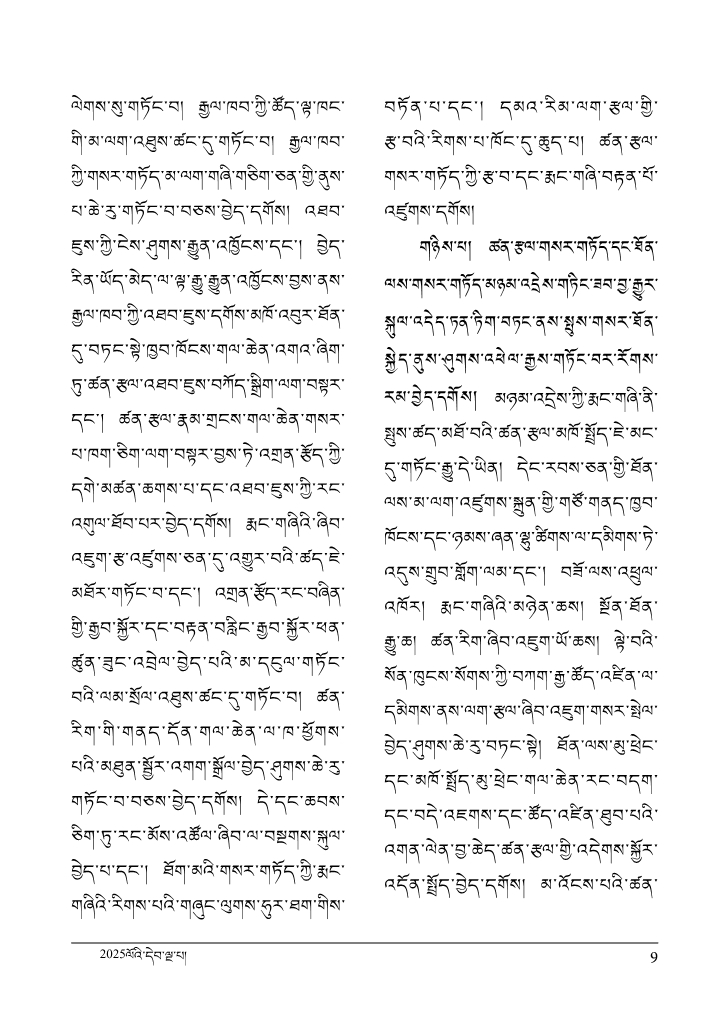 ལེགས་སུ་གཏོང་བ། རྒྱལ་ཁབ་ཀྱི་ཚོད་ལྟ་ཁང་
གི་མ་ལག་འཐུས་ཚང་དུ་གཏོང་བ། རྒྱལ་ཁབ་
ཀྱི་གསར་གཏོད་མ་ལག་གཞི་གཅིག་ཅན་གྱི་ནུས་
པ་ཆེ་རུ་གཏོང་བ་བཅས་བྱེད་དགོས། འཐབ་
ཇུས་ཀྱི་ངེས་ཤུགས་རྒྱུན་འཁྱོངས་དང་། བྱེད་
རིན་ཡོད་མེད་ལ་ལྟ་རྒྱུ་རྒྱུན་འཁྱོངས་བྱས་ནས་
རྒྱལ་ཁབ་ཀྱི་འཐབ་ཇུས་དགོས་མཁོ་འབུར་ཐོན་
དུ་བཏང་སྟེ་ཁྱབ་ཁོངས་གལ་ཆེན་འགའ་ཞིག་
ཏུ་ཚན་རྩལ་འཐབ་ཇུས་བཀོད་སྒྲིག་ལག་བསྟར་
དང་། ཚན་རྩལ་རྣམ་གྲངས་གལ་ཆེན་གསར་
པ་ཁག་ཅིག་ལག་བསྟར་བྱས་ཏེ་འགྲན་རྩོད་ཀྱི་
དགེ་མཚན་ཆགས་པ་དང་འཐབ་ཇུས་ཀྱི་རང་
འགུལ་ཐོབ་པར་བྱེད་དགོས། རྨང་གཞིའི་ཞིབ་
འཇུག་རྩ་འཛུགས་ཅན་དུ་འགྱུར་བའི་ཚད་ཇེ་
མཐོར་གཏོང་བ་དང་། འགྲན་རྩོད་རང་བཞིན་
གྱི་རྒྱབ་སྐྱོར་དང་བརྟན་བརླིང་རྒྱབ་སྐྱོར་ཕན་
ཚུན་ཟུང་འབྲེལ་བྱེད་པའི་མ་དངུལ་གཏོང་
བའི་ལམ་སྲོལ་འཐུས་ཚང་དུ་གཏོང་བ། ཚན་
རིག་གི་གནད་དོན་གལ་ཆེན་ལ་ཁ་ཕྱོགས་
པའི་མཐུན་སྦྱོར་འགག་སྒྲོལ་བྱེད་ཤུགས་ཆེ་རུ་
གཏོང་བ་བཅས་བྱེད་དགོས། དེ་དང་ཆབས་
ཅིག་ཏུ་རང་མོས་འཚོལ་ཞིབ་ལ་བསྔགས་སྐུལ་
བྱེད་པ་དང་། ཐོག་མའི་གསར་གཏོད་ཀྱི་རྨང་
གཞིའི་རིགས་པའི་གཞུང་ལུགས་ཧུར་ཐག་གིས་
བཏོན་པ་དང་། དམའ་རིམ་ལག་རྩལ་གྱི་
རྩ་བའི་རིགས་པ་ཁོང་དུ་ཆུད་པ། ཚན་རྩལ་
གསར་གཏོད་ཀྱི་རྩ་བ་དང་རྨང་གཞི་བརྟན་པོ་
འཛུགས་དགོས།
གཉིས་པ། ཚན་རྩལ་གསར་གཏོད་དང་ཐོན་
ལས་གསར་གཏོད་མཉམ་འདྲེས་གཏིང་ཟབ་བྱ་རྒྱུར་
སྐུལ་འདེད་ཏན་ཏིག་བཏང་ནས་སྤུས་གསར་ཐོན་
སྐྱེད་ནུས་ཤུགས་འཕེལ་རྒྱས་གཏོང་བར་རོགས་
རམ་བྱེད་དགོས། མཉམ་འདྲེས་ཀྱི་རྨང་གཞི་ནི་
སྤུས་ཚད་མཐོ་བའི་ཚན་རྩལ་མཁོ་སྤྲོད་ཇེ་མང་
དུ་གཏོང་རྒྱུ་དེ་ཡིན། དེང་རབས་ཅན་གྱི་ཐོན་
ལས་མ་ལག་འཛུགས་སྐྲུན་གྱི་གཙོ་གནད་ཁྱབ་
ཁོངས་དང་ཉམས་ཞན་ལྷུ་ཚིགས་ལ་དམིགས་ཏེ་
འདུས་གྲུབ་གློག་ལམ་དང་། བཟོ་ལས་འཕྲུལ་
འཁོར། རྨང་གཞིའི་མཉེན་ཆས། སྔོན་ཐོན་
རྒྱུ་ཆ། ཚན་རིག་ཞིབ་འཇུག་ཡོ་ཆས། ལྟེ་བའི་
སོན་ཁུངས་སོགས་ཀྱི་བཀག་རྒྱ་ཚོད་འཛིན་ལ་
དམིགས་ནས་ལག་རྩལ་ཞིབ་འཇུག་གསར་སྤེལ་
བྱེད་ཤུགས་ཆེ་རུ་བཏང་སྟེ། ཐོན་ལས་མུ་ཕྲེང་
དང་མཁོ་སྤྲོད་མུ་ཕྲེང་གལ་ཆེན་རང་བདག་
དང་བདེ་འཇགས་དང་ཚོད་འཛིན་ཐུབ་པའི་
འགན་ལེན་བྱ་ཆེད་ཚན་རྩལ་གྱི་འདེགས་སྐྱོར་
འདོན་སྤྲོད་བྱེད་དགོས། མ་འོངས་པའི་ཚན་
2025ལོའི་དེབ་ལྔ་པ།
9